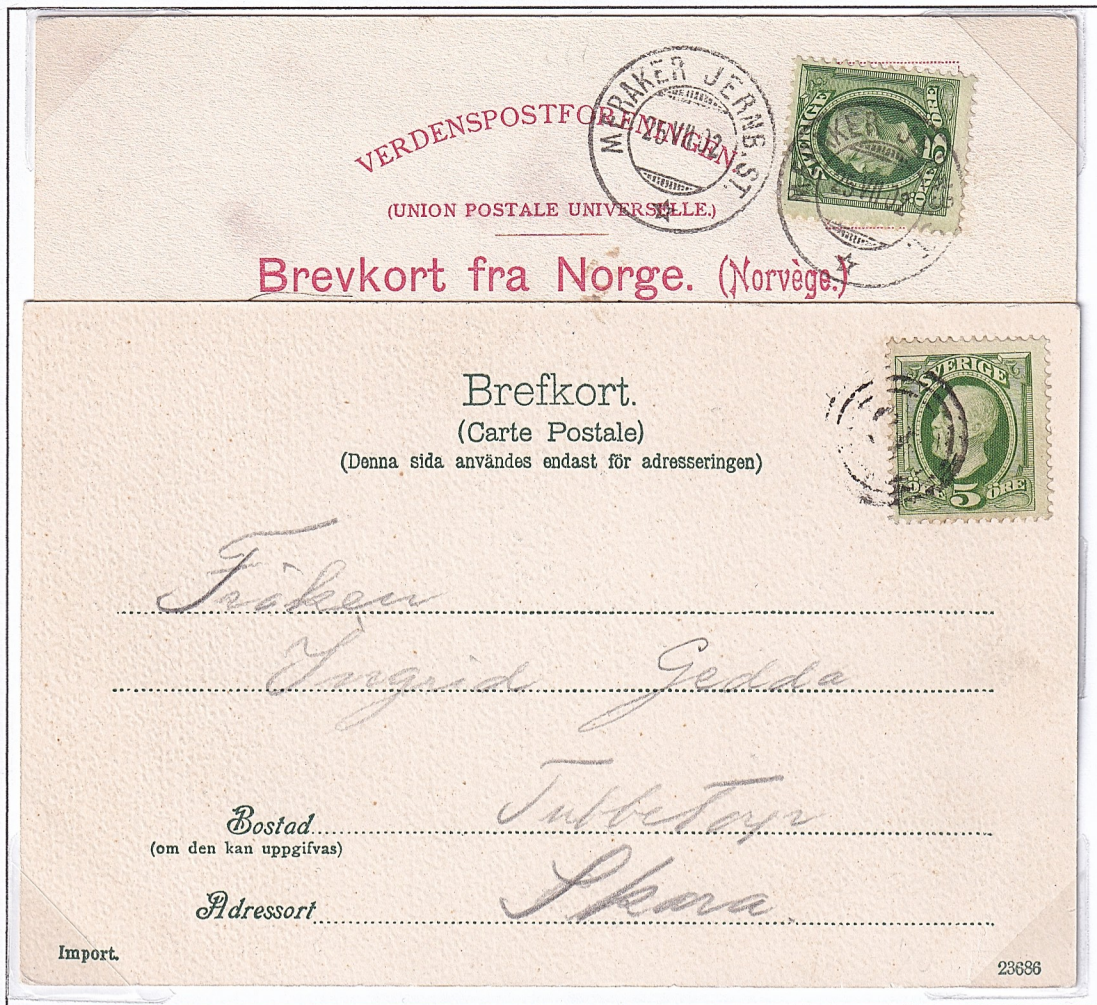 VERDENSPOSTFORENINGEN
(UNION POSTALE UNIVERSELLE.)
Brevkort fra Norge. (Norvège.)
MERAKER JERNB.ST.
25 VII 02
SVERIGE
5
ÖRE ÖRE
Brefkort.
(Carte Postale)
(Denna sida användes endast för adresseringen)
SVERIGE
ÖRE 5 ÖRE
Fröken
Ingrid Gedda
Bostad Tubbetorp
(om den kan uppgifvas)
Adressort Skara.
Import.
23686